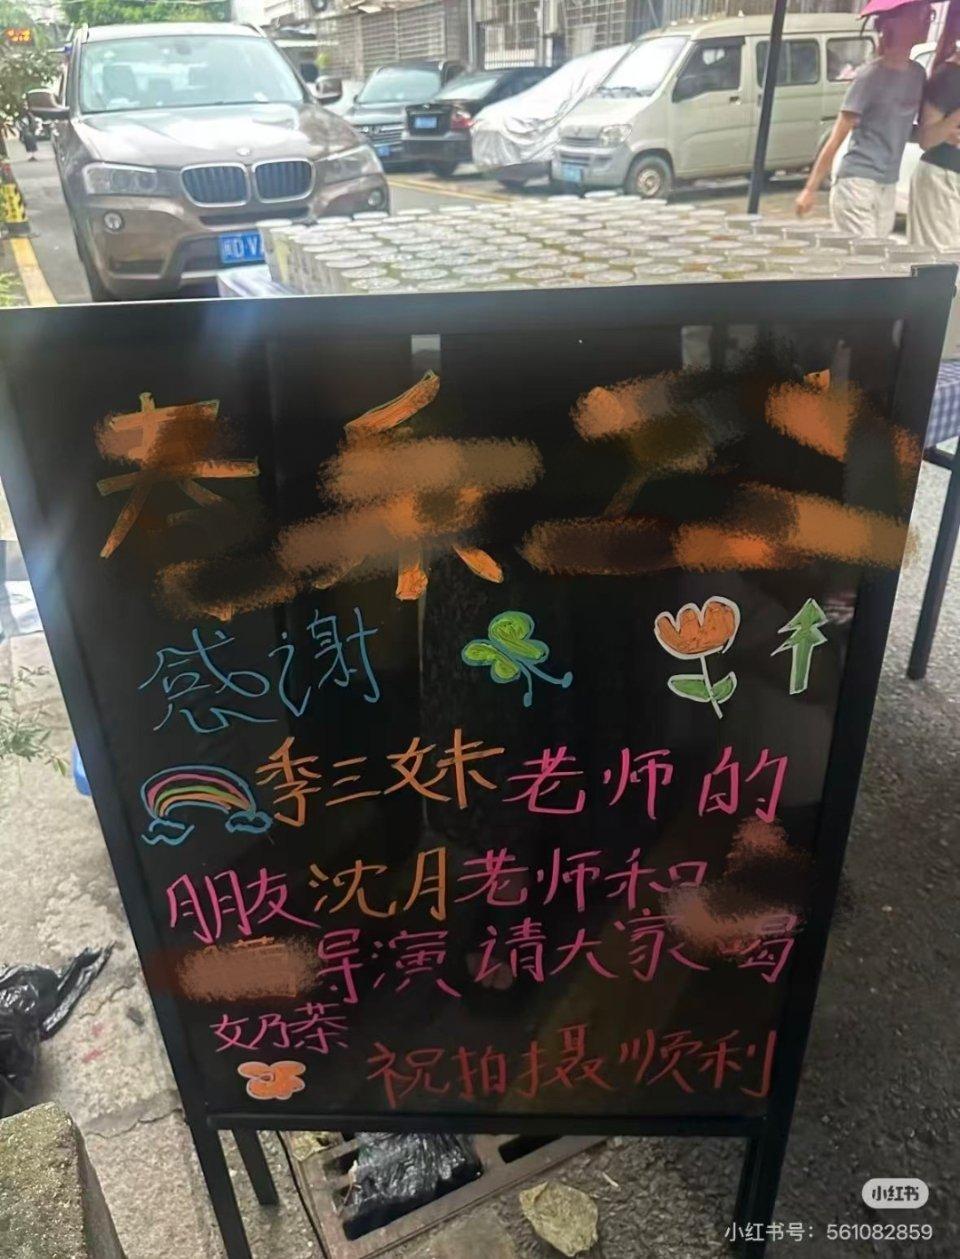 感谢
李三妹老师的
朋友沈月老师和
导演请大家喝
奶茶
祝拍摄顺利
小红书
小红书号：561082859